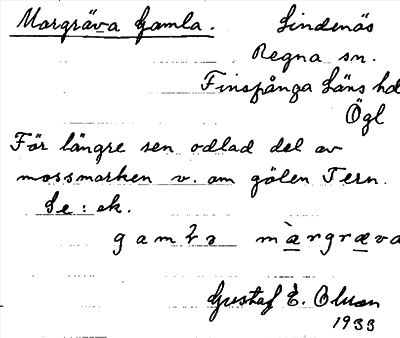 Morgräva Gamla. Lindenäs
Regna sn.
Finspånga Läns hd
Ögl
För längre sen odlad del av
mossmarken v. om gölen Tern.
Se: ek.
gamla mærgræva
Gustaf E. Olson
1933